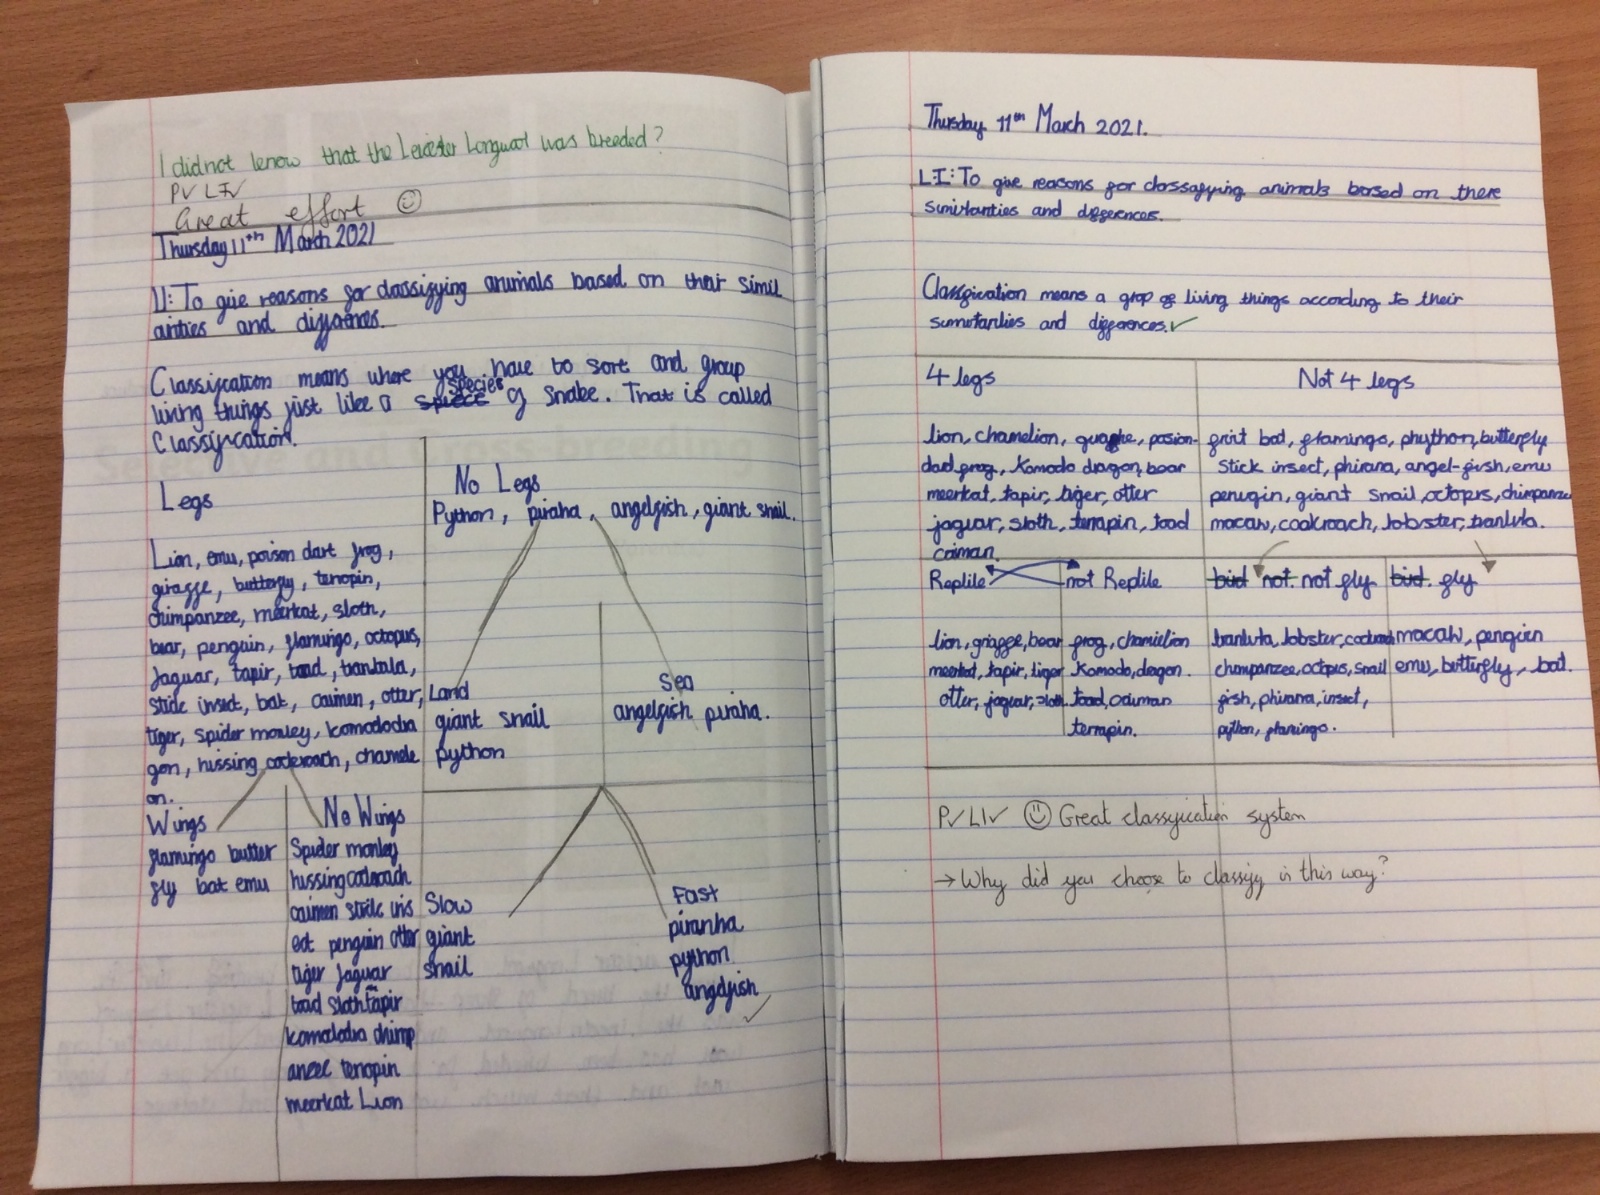 I did not know that the Leicester Longwool was breeded?
P✓ LI✓
Great effort ☺
Thursday 11th March 2021
LI: To give reasons for classifying animals based on their simil
arities and differences.
Classification means where you have to sort and group
living things just like a spiece species of snake. That is called
Classification.
Legs
Lion, emu, poison dart frog,
giraffe, butterfly, terrapin,
chimpanzee, meerkat, sloth,
bear, penguin, flamingo, octopus,
Jaguar, tapir, toad, trantula,
stick insect, bat, caimen, otter,
tiger, spider monley, komododra
gon, hissing cockroach, chamele
on.
No Legs
Python, piraha, angelfish, giant snail.
Land
giant snail
python
Sea
angelfish piraha.
Wings
flamingo butter
fly bat emu
No Wings
Spider monley
hissing cockroach
caimen stick ins
ect penguin otter
tiger Jaguar
toad sloth tapir
komododra chimp
anzee terrapin
meerkat Lion
Slow
giant
snail
Fast
piranha
python
angelfish
Thursday 11th March 2021.
LI: To give reasons for classafying animals barsed on there
and differences.
Classfication means a grop of living things according to their
and differences.✓
4 legs
lion, chamelion, posion-
dard frog, Komodo dragon, boar
meerkat, tapir, tiger, otter
jaguar, sloth, terrapin, toad
caiman.
Not 4 legs
fruit bat, flamingo, phython, butterfly
stick insect, phirana, angel-fish, emu
penugin, giant snail, octopus, chimpanzee
macaw, cookroach, lobster, tranluta.
Replile
not Replile
bird not not fly
bird. fly
lion, griaffe, boar
meerkat, tapir, tiger
otter, jaguar, sloth
frog, chamielion
Komodo, dragon.
toad, caiman
terrapin.
tranluta, lobster,
chimpanzee, octpus, snail
fish, phirana, insect,
python, flamingo.
macaw, penguin
emu, butterfly, bat.
P✓ LI✓ ☺ Great classification system
→ Why did you choose to classify in this way?